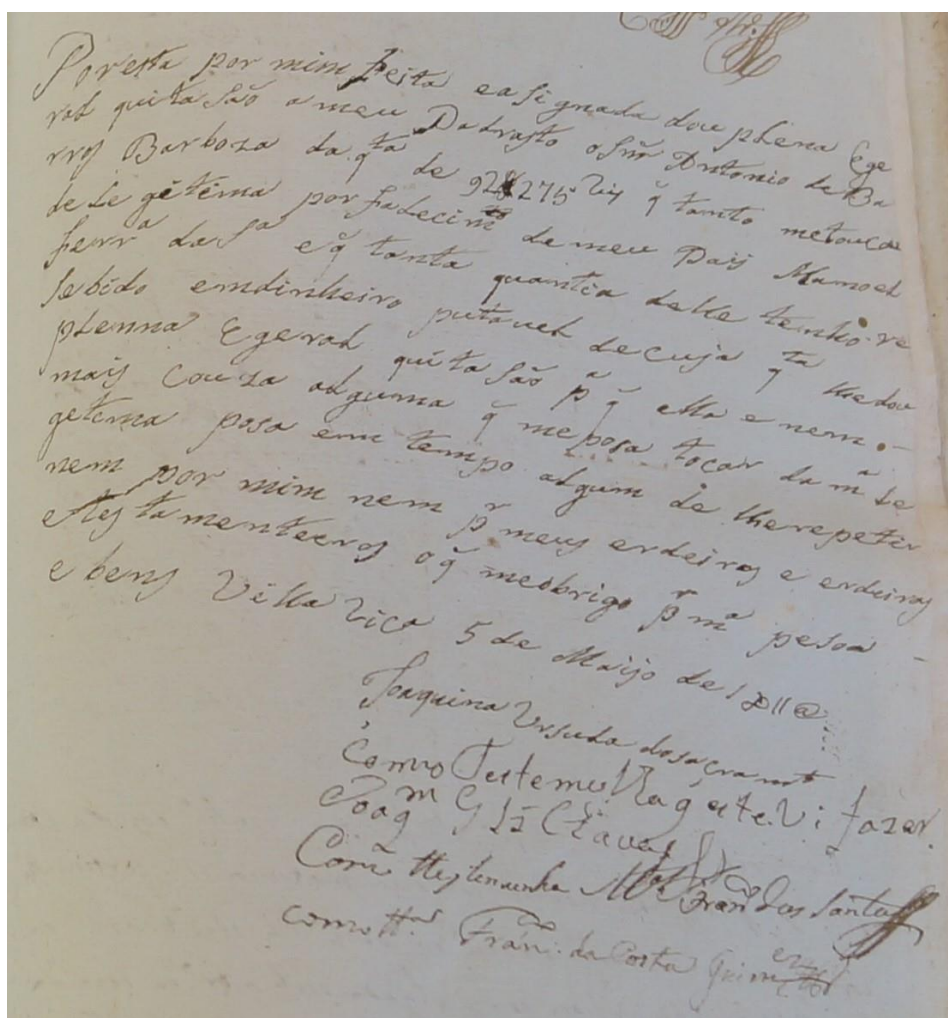 Por esta por mim feita easignada dou plena Ege
ral quitasão ameu Padrasto oSnr Antonio de Ba
rros Barboza da qta de 928275 reis q tanto metoucou
de Legetima por falecimto de meu Pais Manoel
ferra da Sa eq tanta quantia delle tenho re
sebido emdinheiro putavel decuja qta lhedou
plenna Egeral quitasão pa q ella e nem
mais couza alguma q meposa tocar da ma Le
getima posa em tempo algum de lherepetir
nem por mim nem pr meus erdeiros e erdeiros
eTestamenteeros oq meobrigo pr ma pesoa
e bens Villa Rica 5 de Maijo de 1811@
Joaquina Ursula dosacramto
Como Testemunha q este Vi fazer
Joaqm
Como tteztemunha Mel Frano dos Santos
como tta Frano da Costa Guimes